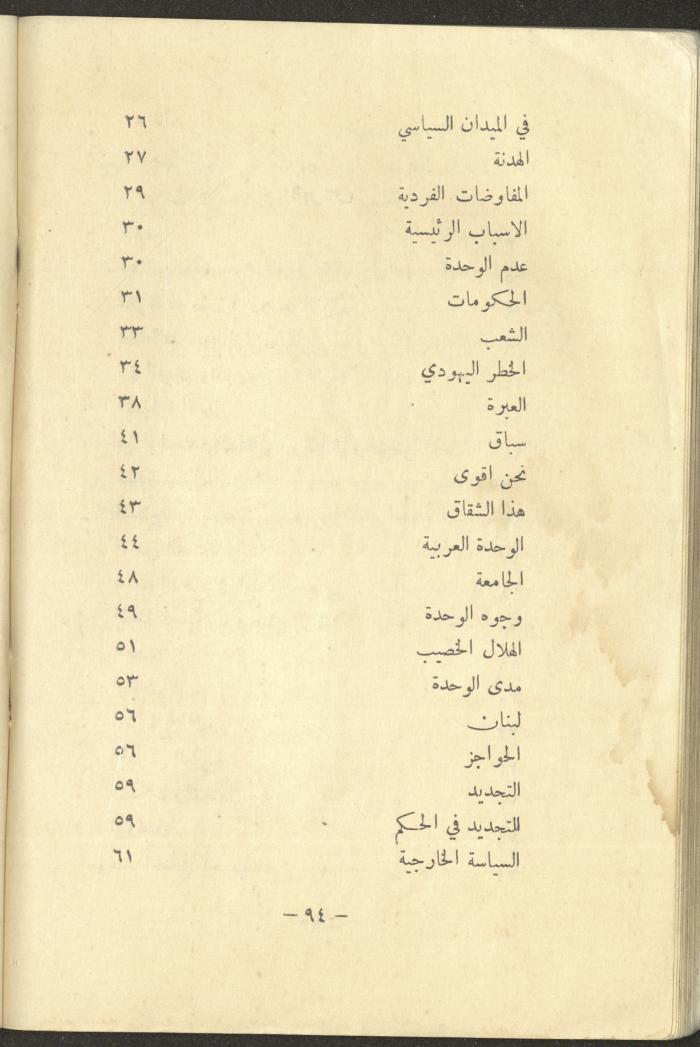 في الميدان السياسي ٢٦
الهدنة ٢٧
المفاوضات الفردية ٢٩
الاسباب الرئيسية ٣٠
عدم الوحدة ٣٠
الحكومات ٣١
الشعب ٣٣
الخطر اليهودي ٣٤
العبرة ٣٨
سباق ٤١
نحن اقوى ٤٢
هذا الشقاق ٤٣
الوحدة العربية ٤٤
الجامعة ٤٨
وجوه الوحدة ٤٩
الهلال الخصيب ٥١
مدى الوحدة ٥٣
لبنان ٥٦
الحواجز ٥٦
التجديد ٥٩
التجديد في الحكم ٥٩
السياسة الخارجية ٦١
— ٩٤ —